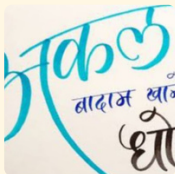 अकल
बादाम
धो